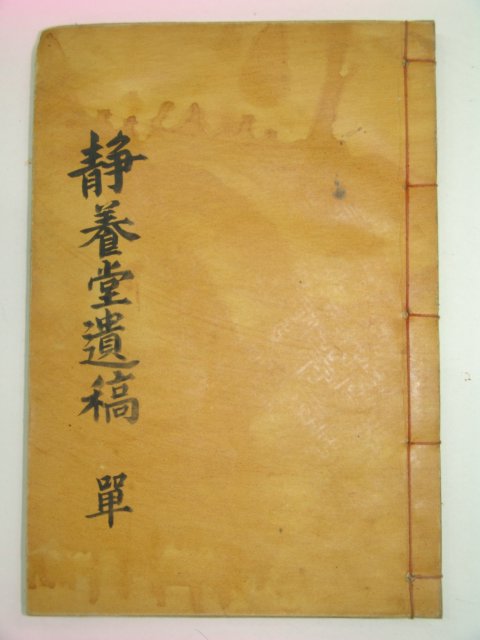 静養堂遺稿 單